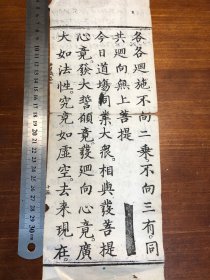 各各迴施不向二乗不向三有同
共迴向無上菩提
今日道場同業大衆相與發菩提
心竟發大誓願竟發迴向心竟廣
大如法性究竟如虚空去来現在